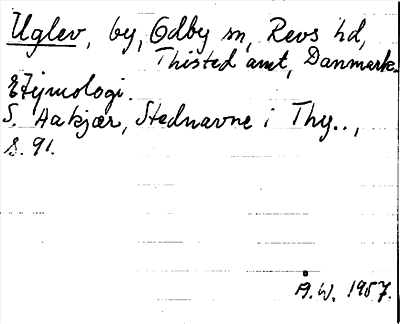 Uglev, by, Odby sn, Revs hd,
Thisted amt, Danmark.
Etymologi.
S. Aakjær, Stednavne i Thy..,
s. 91.
A.W. 1957.